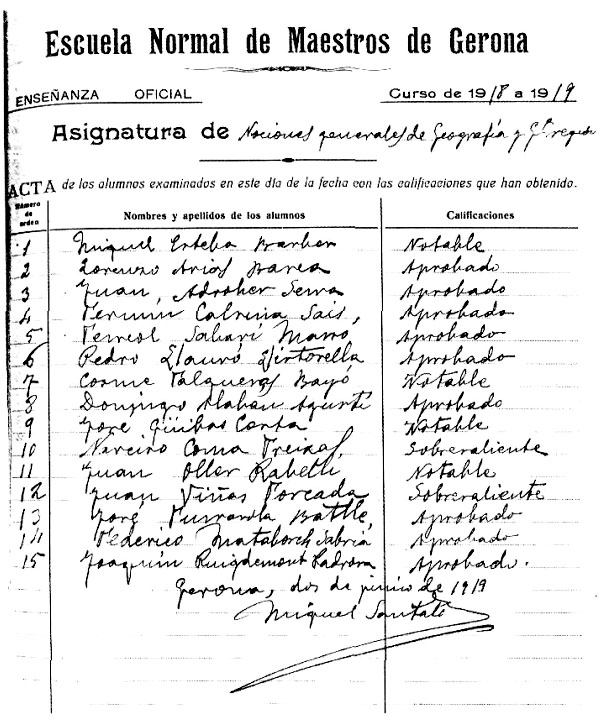 Escuela Normal de Maestros de Gerona
ENSEÑANZA OFICIAL Curso de 1918 a 1919
Asignatura de Nociones generales de Geografía y
ACTA de los alumnos examinados en este día de la fecha con las calificaciones que han obtenido.
Número de orden Nombres y apellidos de los alumnos Calificaciones
1 Miquel Esteba Barber Notable
2 Lorenzo Arios Barea Aprobado
3 Juan Adroher Serra Aprobado
4 Sais, Aprobado
5 Aprobado
6 Pedro Llauró Aprobado
7 Cosme Falgueras Bayó Notable
8 Domingo Aprobado
9 José Güibas Costa Notable
10 Narciso Coma Sobresaliente
11 Juan Oller Rabell Notable
12 Juan Viñas Forcada Sobresaliente
13 José Batlle Aprobado
14 Federico Sabriá Aprobado
15 Joaquín Puigdemont Padrosa Aprobado.
Gerona, dos de junio de 1919
Miquel Santaló